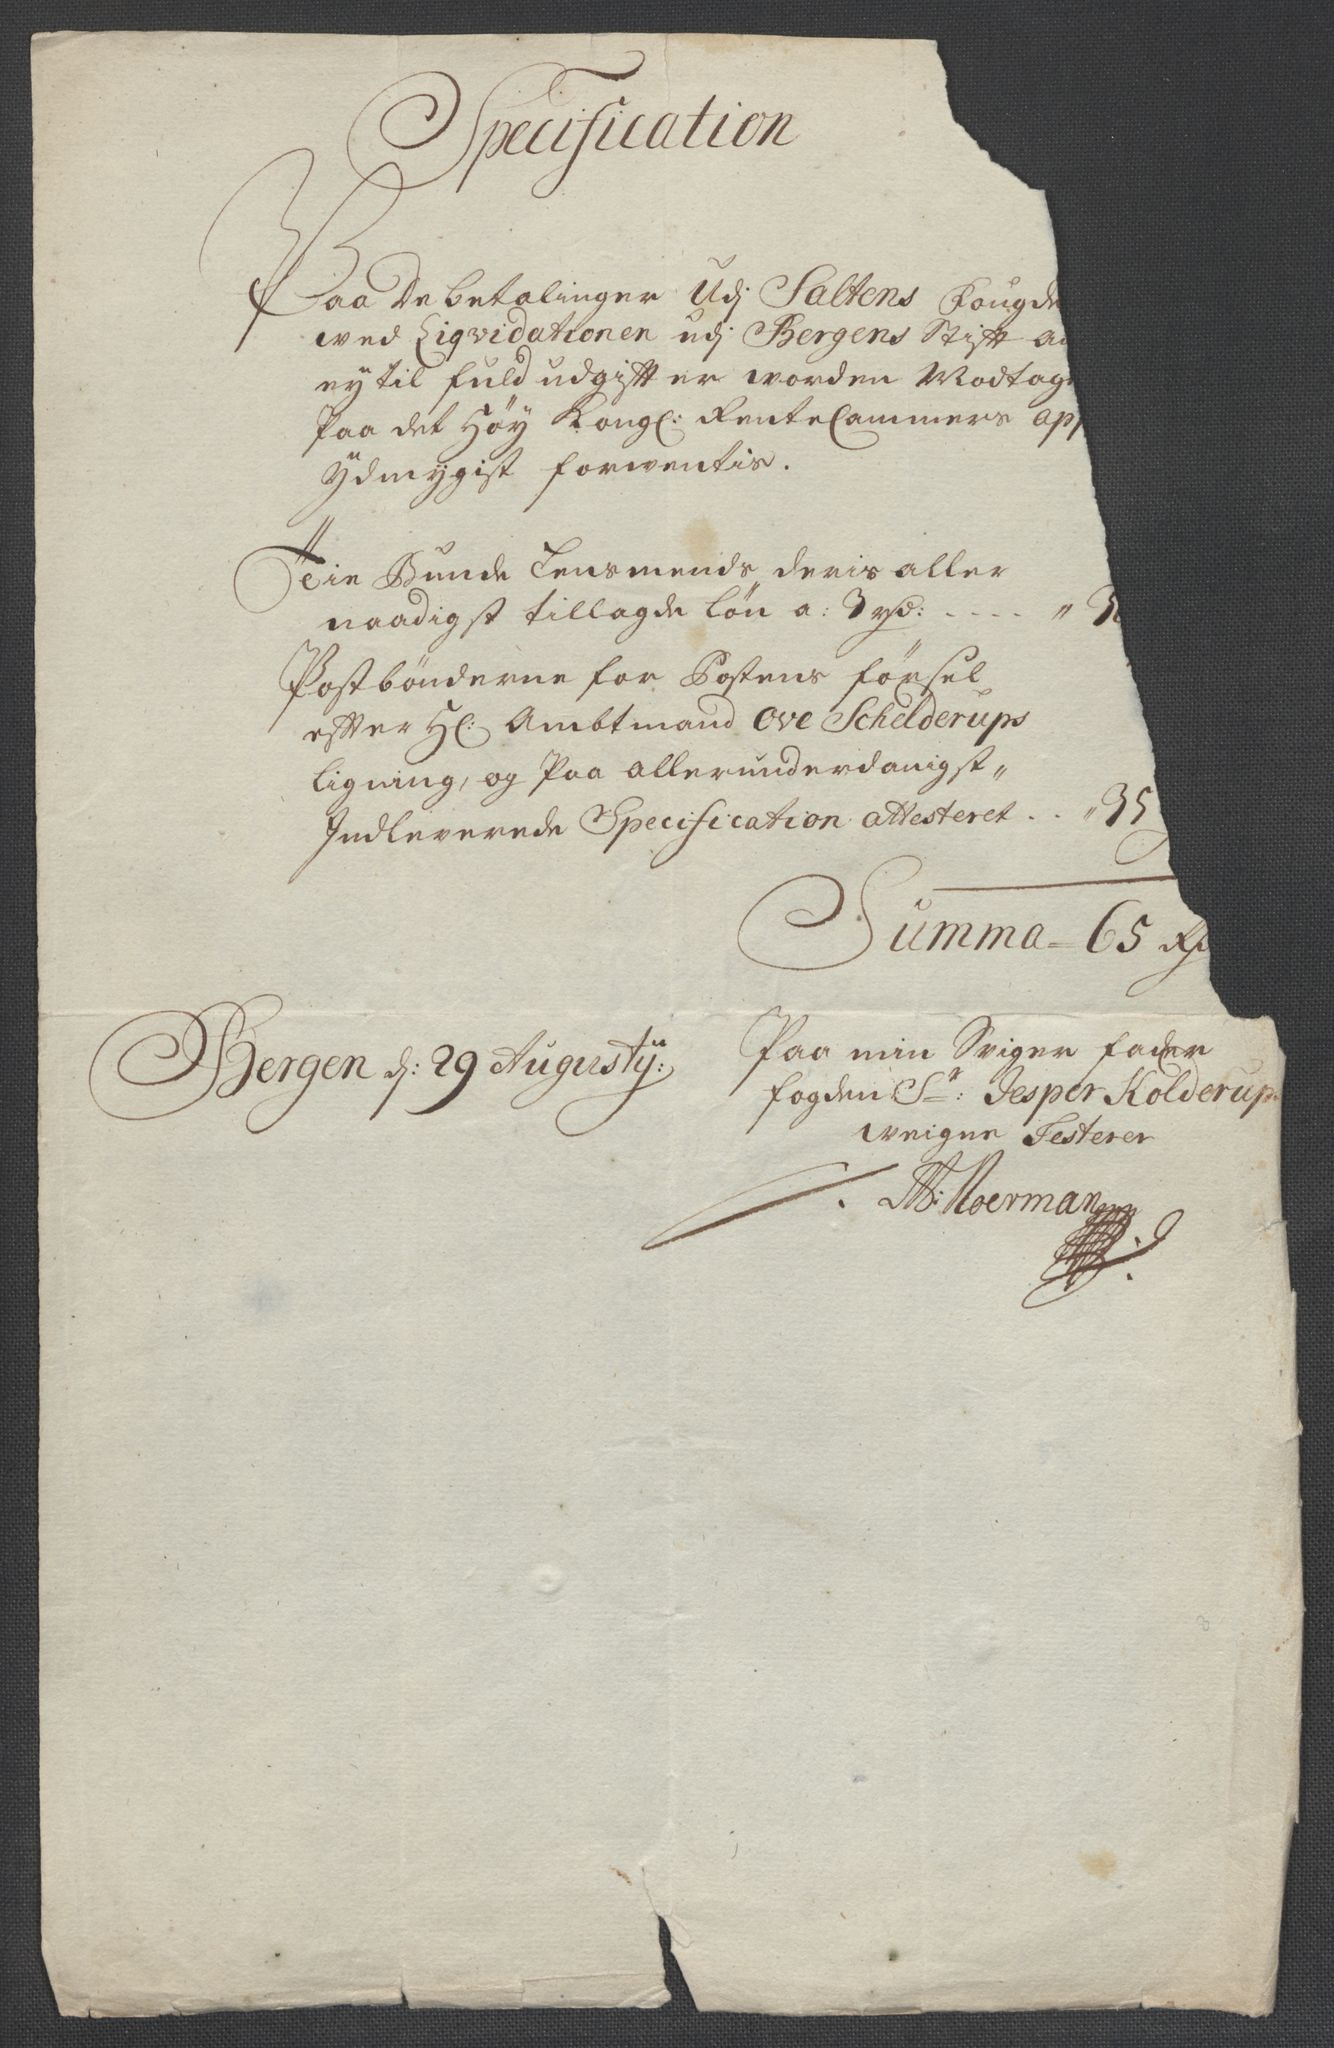 Specification
Paa De betalinger Udj Saltens Fougde
wed Liqvidationen udj Bergens Stift
ey til fuld udgift er worden Modtag
Paa det Høy Kongl: RenteCammers app
Ydmygist forwentis.
Tie Bunde Lensmends deris aller
naadigst tillagde løn a: 3 rd: - - - - " 3
Postbønderne for Postens førsel
efter Hl: Ambtmand Ove Schelderups
ligning, og Paa allerunderdanigst„
Indleverede Specification attesteret . . " 35
Summa = 65 Rd
Bergen d: 29 Augustij:
Paa min Sviger fader
fogden Sr: Jesper Kolderups
weigne Testerer
Moerman